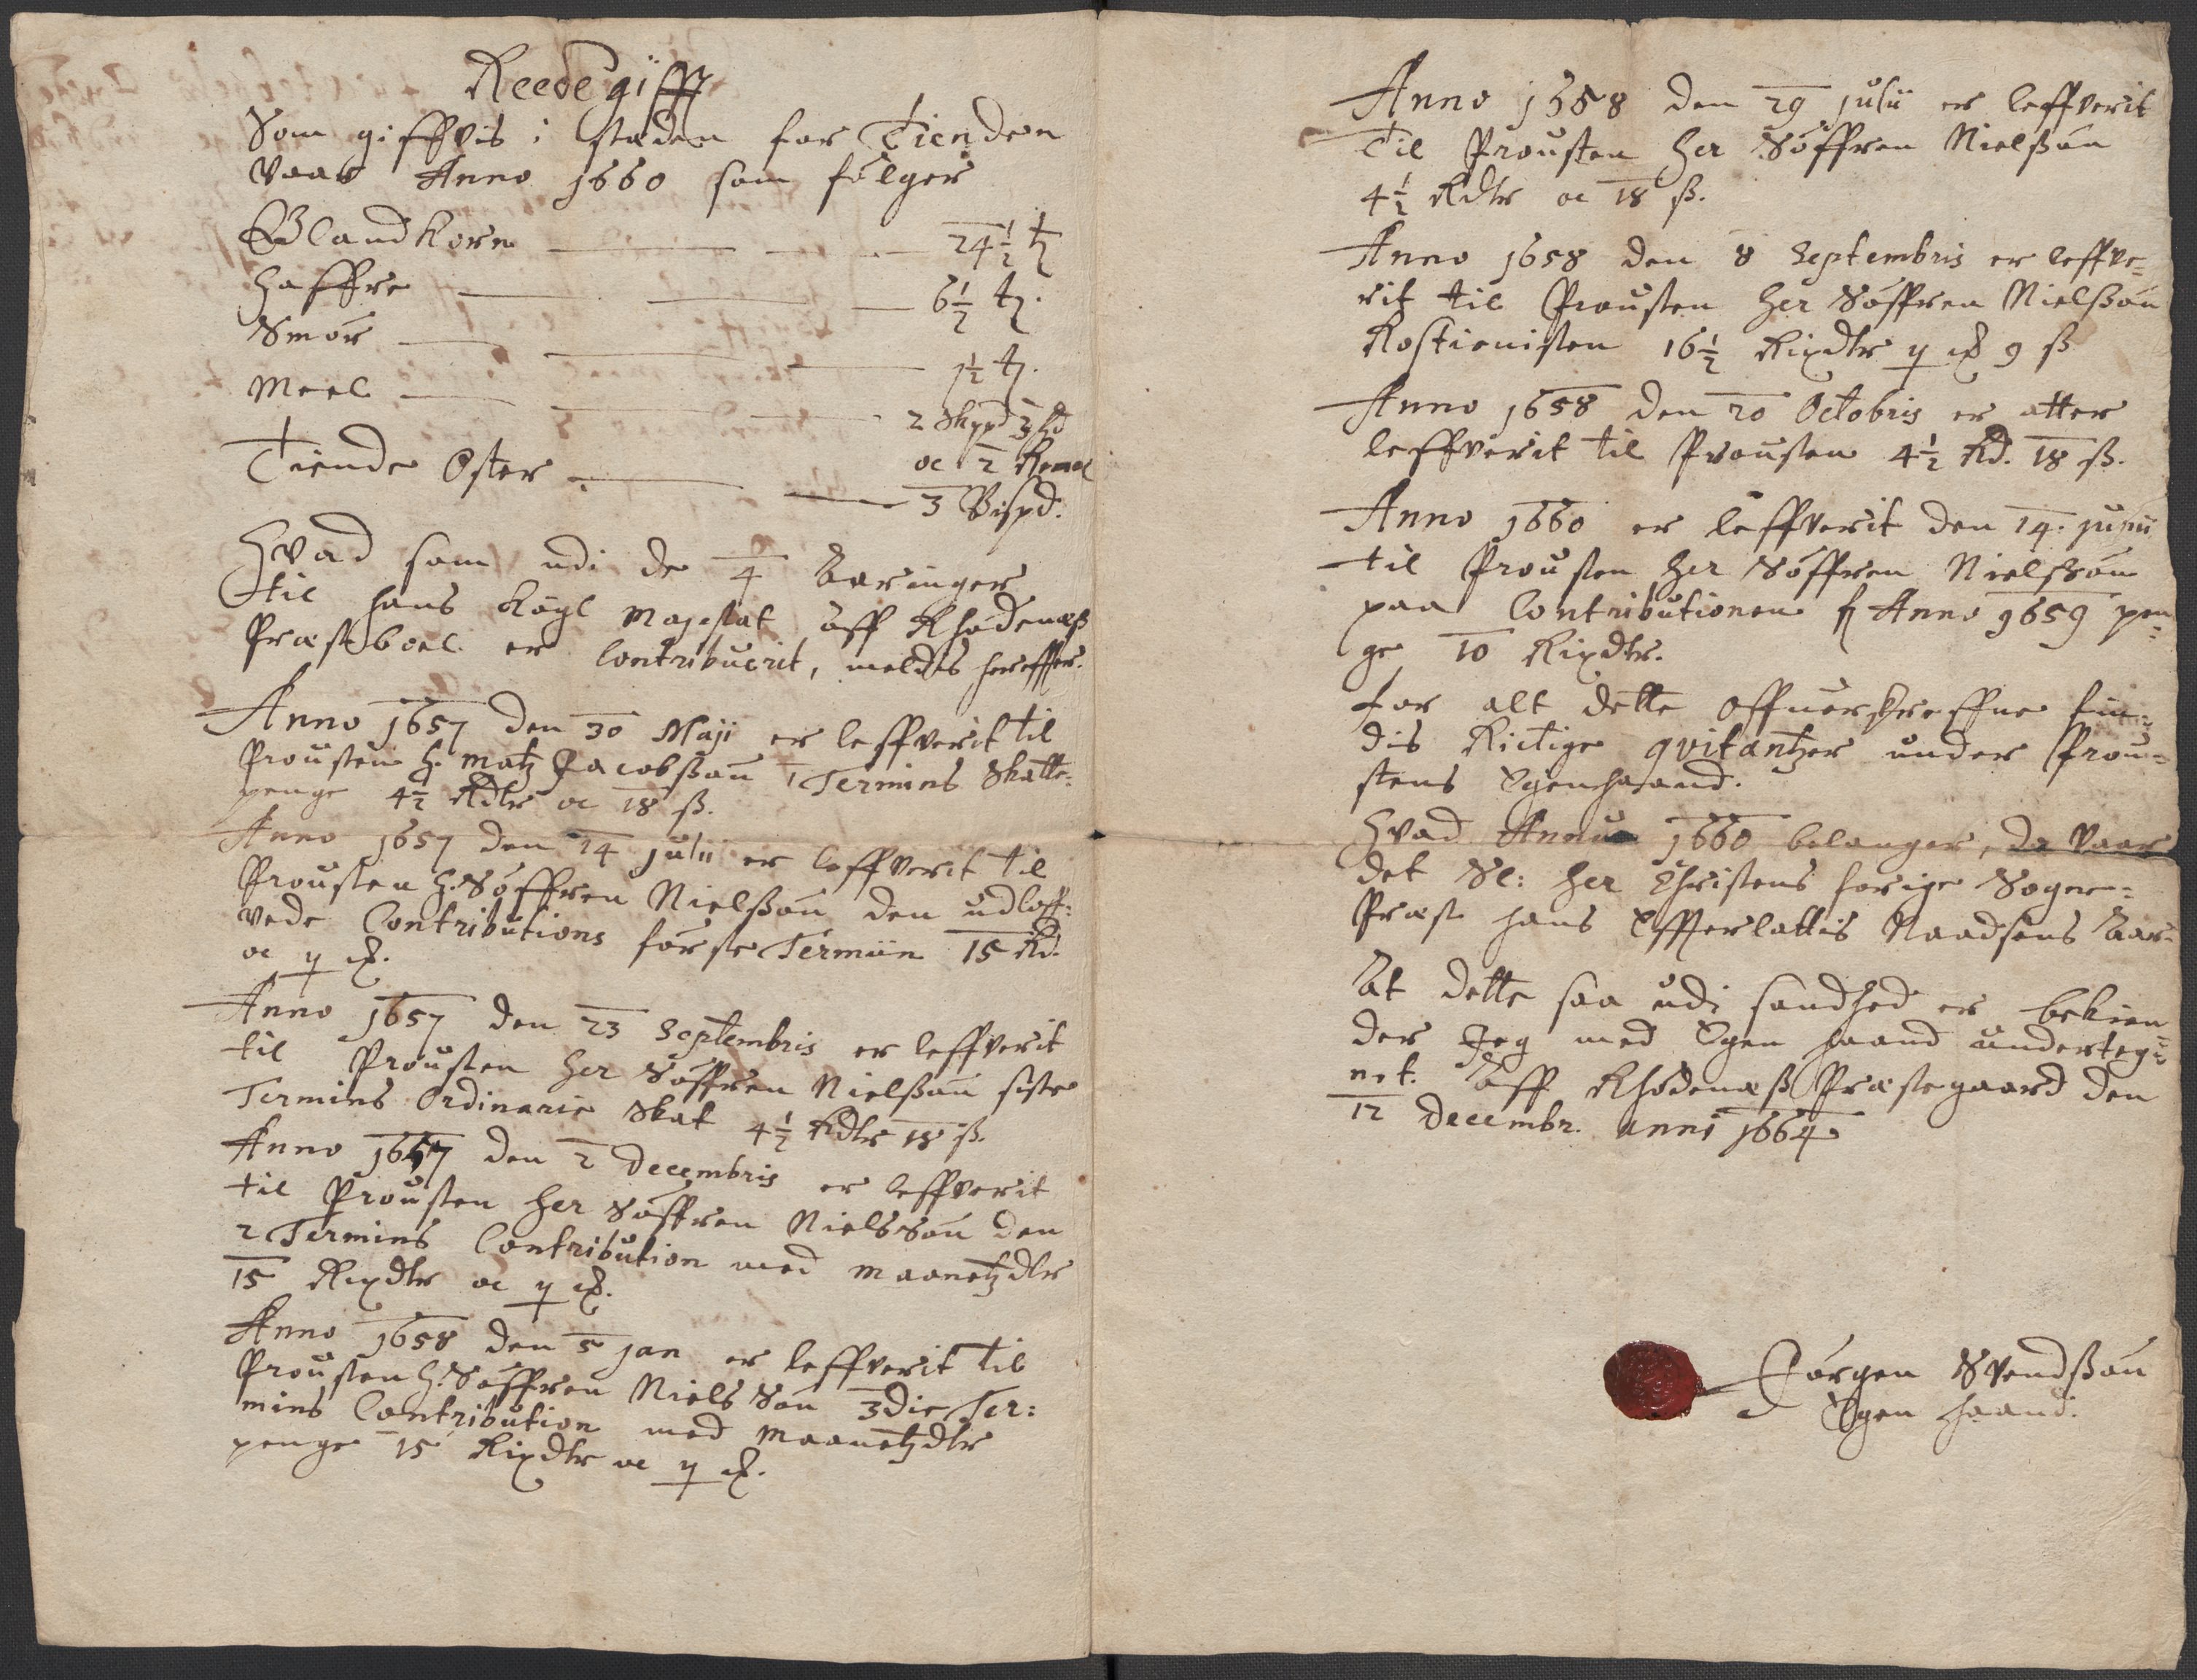 Reedegifft
Som giffvis i stæden for Tienden
vaar Anno 1660 som følger
Blandkorn 24½ t
Haffre 6½ t.
Smør 1½ t.
Meel 2 Skpd 3
oc 2
Tiende Oster 3 Bispd.
Hvad som udi de 4 Aaringer
til hans Kögl Majestat aff Rhödenæß
Præstboel er Contribuerit, meldes hereffter.
Anno 1657 den 30 Maji er leffverit til
Prousten H. Matz Jacobßøn 1 Termins Skatte-
penge 4½ Rdlr oc 18 ß.
Anno 1657 den 14 julii er leffverit til
Prousten H. Søffren Nielßøn den udloff-
vede Contributions første Termiin 15 Rd.
oc
Anno 1657 den 23 Septembris er leffverit
til Prousten Her Søffren Nielßøn siste
Termins Ordinarie Skat 4½ Rdlr 18 ß.
Anno 1657 den 2 Decembris er leffverit
til Prousten Her Søffren Nielssøn den
2 Termins Contribution med maanetzdlr
15 Rixdlr oc
Anno 1658 den 5 jan er leffverit til
Prousten H. Søffren Nielssøn 3die Ter:
mins Contribution med Maanetzdlr
penge 15 Rixdlr oc
Anno 1658 den 29 julii er leffverit
Til Prousten Her Søffren Nielßøn
4½ Rdlr oc 18 ß.
Anno 1658 den 8 Septembris er leffve=
rit til Prousten Her Søffren Nielßøn
Rostienisten 16½ Rixdlr 9 ß
Anno 1658 den 20 Octobris er atter
leffverit til Prousten 4½ Rd. 18 ß.
Anno 1660 er leffverit den 14. junii
til Prousten Her Søffren Nielssøn
paa Contributionen Anno 1659 pen
ge 10 Rixdlr.
for alt dette offuerskreffne fin=
dis Rictige qvitantzer under Prou=
stens Egenhaand.
Hvad Annum 1660 belanger, da vaar
det Sl: Her Christens forige Sogne=
Præst hans Effterlattis Naadsens Aar.
At dette saa udi sandhed er bekien
der Jeg med Egen haand underteg=
net. Aff Rhødenæß Præstegaard den
12 Decembr. anni 1664
Jörgen Svendßøn
Egen Haand.